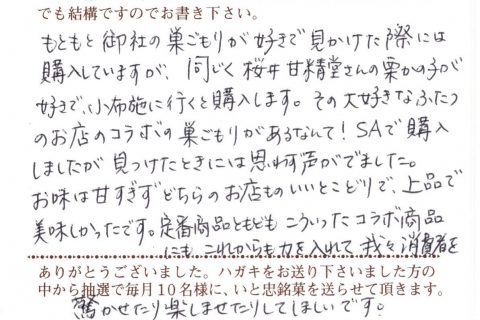 でも結構ですのでお書き下さい。
もともと御社の巣ごもりが好きで見かけた際には
購入していますが、同じく桜井甘精堂さんの栗かの子が
好きで、小布施に行くと購入します。その大好きなふたつ
のお店のコラボの巣ごもりがあるなんて！SAで購入
しましたが見つけたときには思わず声がでました。
お味は甘すぎずどちらのお店ものいいとこどりで、上品で
美味しかったです。定番商品ともどもこういったコラボ商品
にも、これからも力を入れて我々消費者を
ありがとうございました。ハガキをお送り下さいました方の
中から抽選で毎月１０名様に、いと忠銘菓を送らせて頂きます。
驚かせたり楽しませたりしてほしいです。